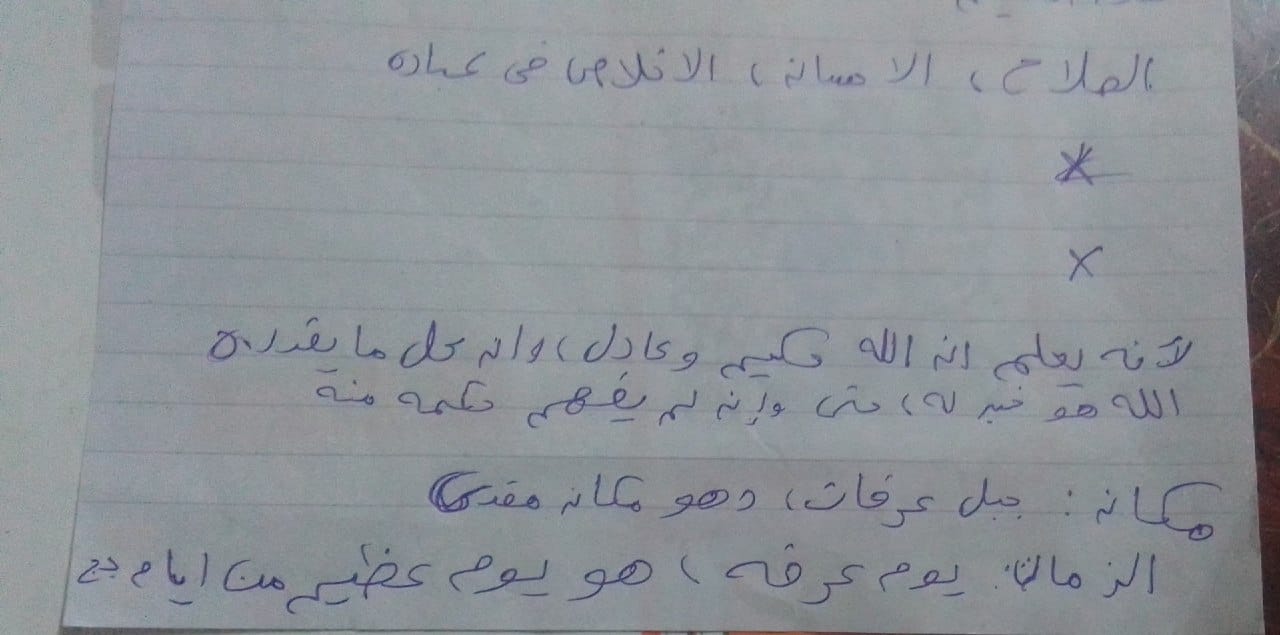 الصلاح، الامانه، الاخلاص في عباده
لآنه يعلم انه الله حكيم وعادل، وانه كل ما يقدره
الله هو خير له، حتى وإنه لم يفهم حكمه منه
مكانه: جبل عرفات، وهو مكانه مقدس
الزمان: يوم عرفه، هو يوم عظيم من ايام حج